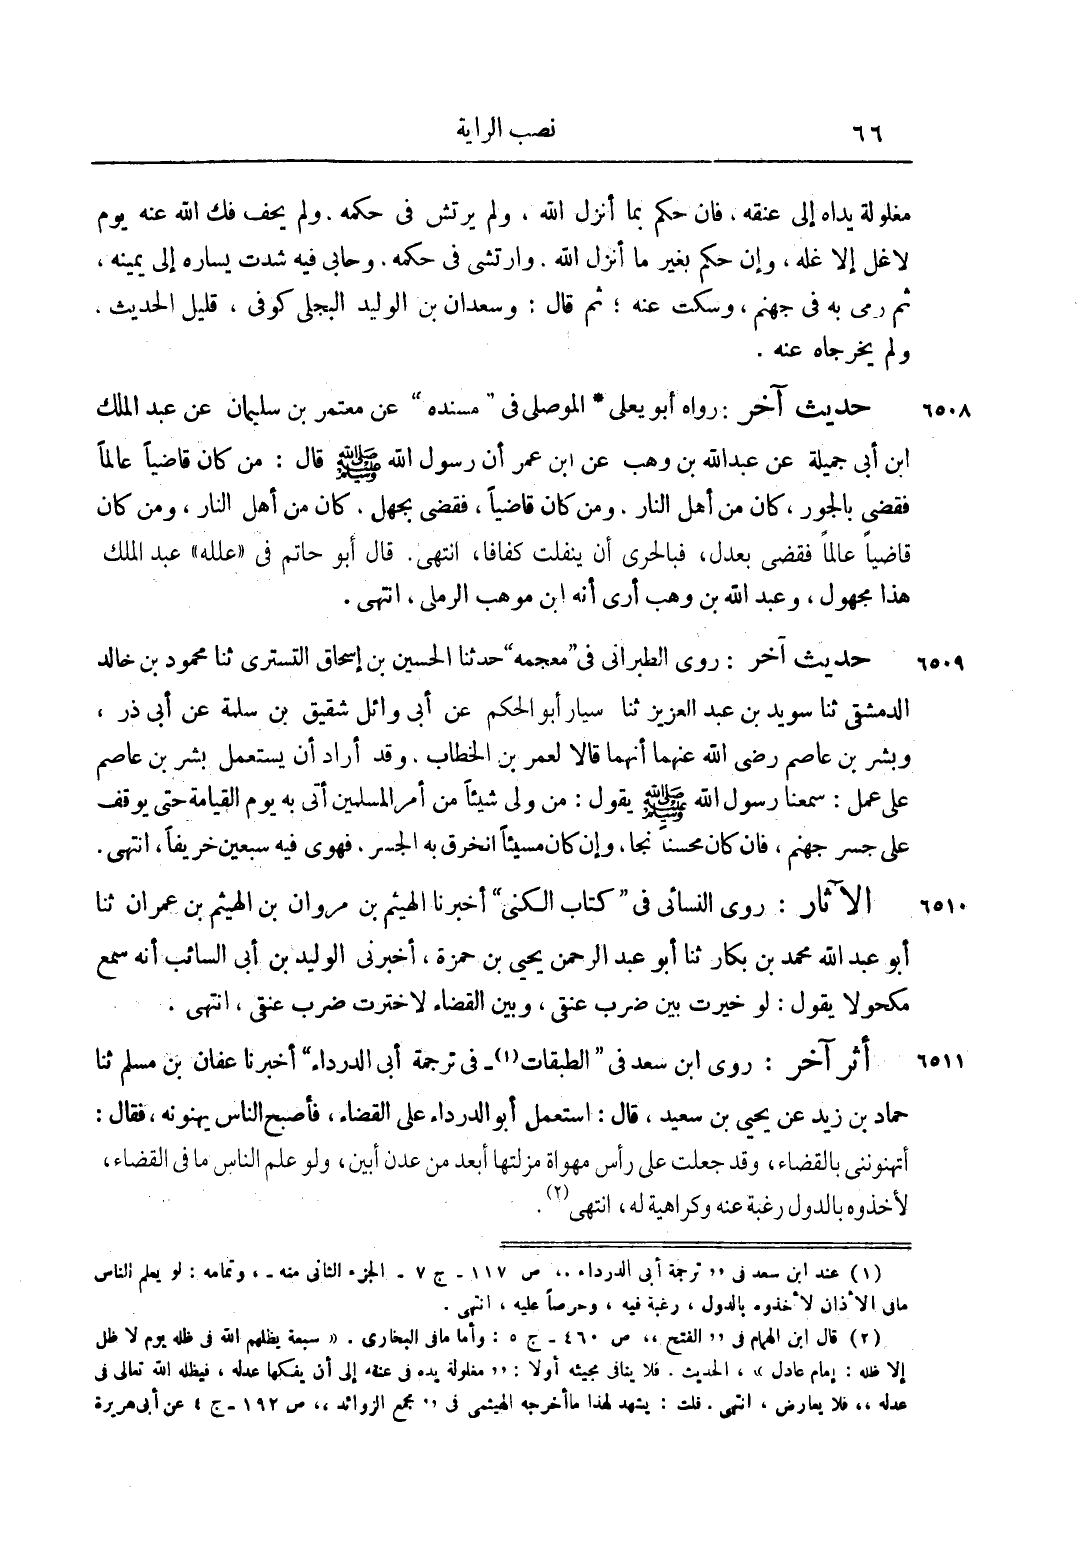 ٦٦ نصب الراية
مغلولة يداه إلى عنقه ، فان حكم بما أنزل الله ، ولم يرتش فى حكمه . ولم يحف فك الله عنه يوم
لاغل إلا غله ، وإن حكم بغير ما أنزل الله . وارتشى فى حكمه . وحابى فيه شدت يساره إلى يمينه ،
ثم رمى به فى جهنم ، وسكت عنه ؛ ثم قال : وسعدان بن الوليد البجلى كوفى ، قليل الحديث .
ولم يخرجاه عنه .
٦٥٠٨ حديث آخر : رواه أبو يعلى * الموصلى فى " مسنده " عن معتمر بن سليمان عن عبد الملك
ابن أبى جميلة عن عبدالله بن وهب عن ابن عمر أن رسول الله ﷺ قال : من كان قاضياً عالماً
فقضى بالجور ، كان من أهل النار . ومن كان قاضياً ، فقضى بجهل . كان من أهل النار ، ومن كان
قاضياً عالماً فقضى بعدل، فبالحرى أن ينفلت كفافا، انتهى. قال أبو حاتم فى «علله» عبد الملك
هذا مجهول ، وعبد الله بن وهب أرى أنه ابن موهب الرملى ، انتهى .
٦٥٠٩ حديث آخر : روى الطبرانى فى "معجمه" حدثنا الحسين بن إسحاق التسترى ثنا محمود بن خالد
الدمشقى ثنا سويد بن عبد العزيز ثنا سيار أبو الحكم عن أبى وائل شقيق بن سلمة عن أبى ذر ،
وبشر بن عاصم رضى الله عنهما أنهما قالا لعمر بن الخطاب . وقد أراد أن يستعمل بشر بن عاصم
على عمل : سمعنا رسول الله ﷺ يقول : من ولى شيئاً من أمر المسلمين أتى به يوم القيامة حتى يوقف
على جسر جهنم ، فان كان محسناً نجا ، وإن كان مسيئاً انخرق به الجسر . فهوى فيه سبعين خريفاً ، انتهى .
٦٥١٠ الآثار : روى النسائى فى " كتاب الكنى " أخبرنا الهيثم بن مروان بن الهيثم بن عمران ثنا
أبو عبد الله محمد بن بكار ثنا أبو عبد الرحمن يحيى بن حمزة ، أخبرنى الوليد بن أبى السائب أنه سمع
مكحولا يقول : لو خيرت بين ضرب عنقى ، وبين القضاء لاخترت ضرب عنقى ، انتهى .
٦٥١١ أثر آخر : روى ابن سعد فى " الطبقات (١)ـ فى ترجمة أبى الدرداء " أخبرنا عفان بن مسلم ثنا
حماد بن زيد عن يحيى بن سعيد ، قال : استعمل أبو الدرداء على القضاء ، فأصبح الناس يهنونه ، فقال :
أتهنوننى بالقضاء، وقد جعلت على رأس مهواة مزلتها أبعد من عدن أبين، ولو علم الناس ما فى القضاء،
لأخذوه بالدول رغبة عنه وكراهية له، انتهى (٢) .
(١) عند ابن سعد فى ,, ترجمة أبى الدرداء ،، ص ١١٧ ـ ج ٧ ـ الجزء الثانى منه ـ ، وتمامه : لو يعلم الناس
مافى الأذان لأخذوه بالدول ، رغبة فيه ، وحرصاً عليه ، انتهى .
(٢) قال ابن الهمام فى ,, الفتح ،، ص ٤٦٠ ـ ج ٥ : وأما مافى البخارى . « سبعة يظلهم الله فى ظله يوم لا ظل
إلا ظله : إمام عادل » ، الحديث . فلا ينافى مجيئه أولا : ,, مغلولة يده فى عنقه إلى أن يفكها عدله ، فيظله الله تعالى فى
عدله ،، فلا يعارض ، انتهى . قلت : يشهد لهذا ماأخرجه الهيثمى فى ,, مجمع الزوائد ،، ص ١٩٢ ـ ج ٤ عن أبى هريرة